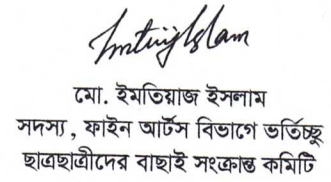 Imtiaj Islam
মো. ইমতিয়াজ ইসলাম
সদস্য, ফাইন আর্টস বিভাগে ভর্তিচ্ছু
ছাত্রছাত্রীদের বাছাই সংক্রান্ত কমিটি